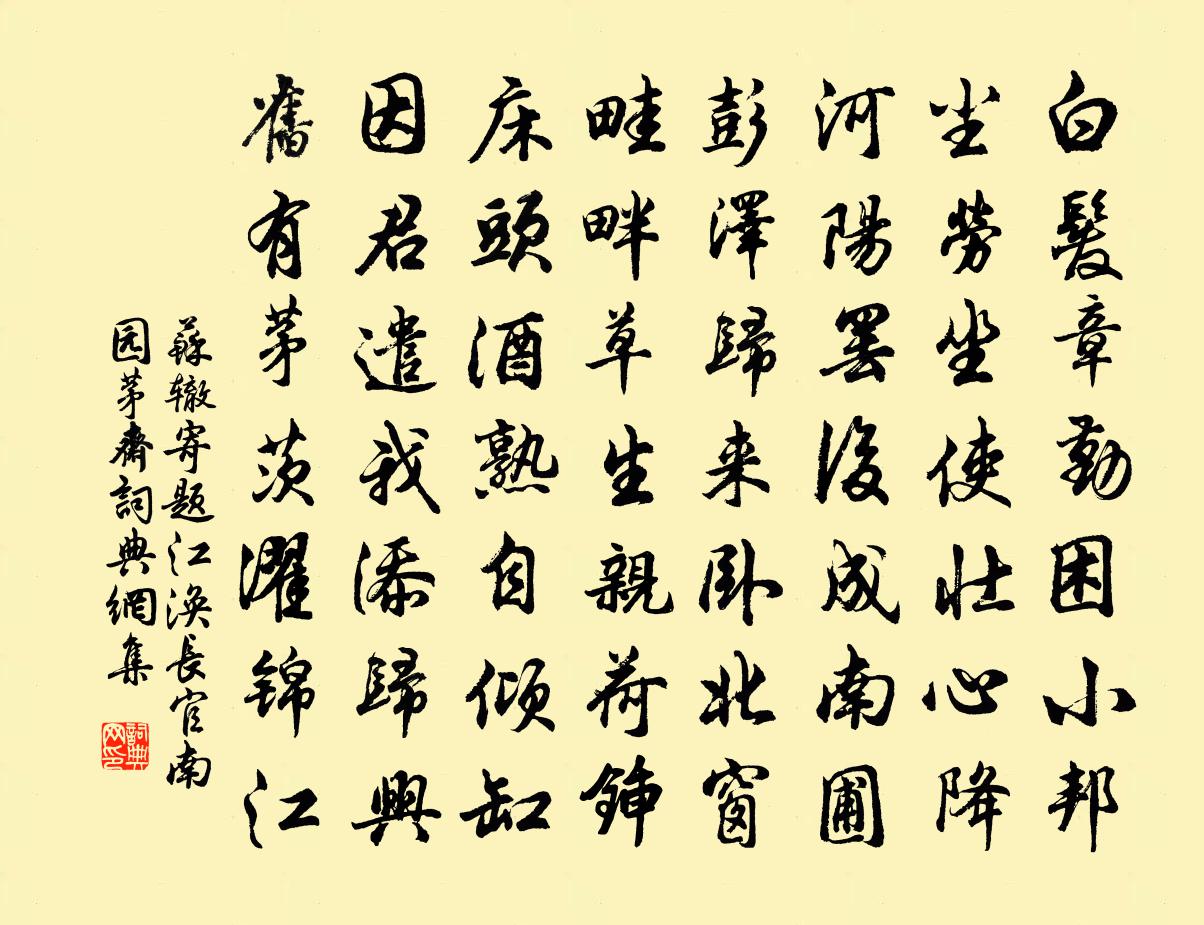 白髮章勤困小邦
尘勞坐使壯心降
河陽罢後成南圃
彭澤歸来卧北窗
畦畔草生親荷鍤
床頭酒熟自倾缸
因君遣我添歸興
舊有茅茨濯錦江
蘇辙寄题江渙長官南
园茅齋詞典網集
詞典
网印